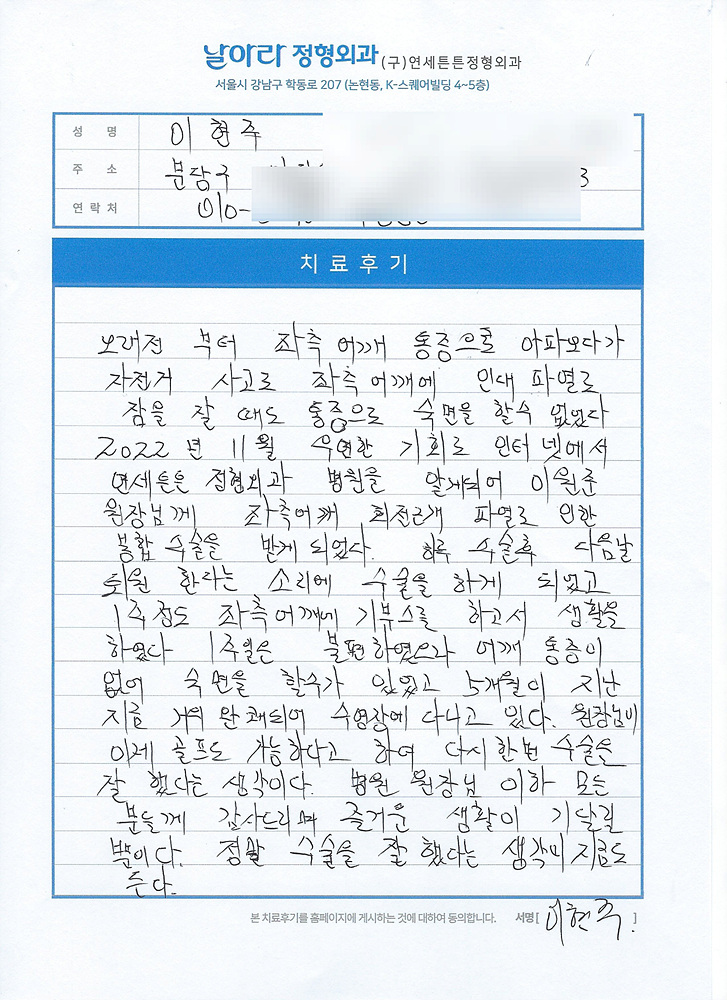 날아라 정형외과 (구)연세튼튼정형외과
서울시 강남구 학동로 207 (논현동, K-스퀘어빌딩 4~5층)
성 명 이현주
주 소 분당구 3
연락처 010-
치료후기
오래전 부터 좌측 어깨 통증으로 아파오다가
자전거 사고로 좌측 어깨에 인대 파열로
잠을 잘 때도 통증으로 숙면을 할수 없었다
2022년 11월 우연한 기회로 인터넷에서
연세튼튼 정형외과 병원을 알게되어 이원준
원장님께 좌측어깨 회전근개 파열로 인한
봉합 수술을 받게 되었다. 하루 수술후 다음날
퇴원 한다는 소리에 수술을 하게 되었고
1주정도 좌측어깨에 기부스를 하고서 생활을
하였다 1주일은 불편하였으나 어깨 통증이
없어 숙면을 할수가 있었고 5개월이 지난
지금 거의 완쾌되어 수영장에 다니고 있다. 원장님이
이제 골프도 가능하다고 하여 다시한번 수술은
잘 했다는 생각이다. 병원 원장님 이하 모든
분들께 감사드리며 즐거운 생활이 기달릴
뿐이다. 정말 수술을 잘 했다는 생각이 지금도
든다.
본 치료후기를 홈페이지에 게시하는 것에 대하여 동의합니다. 서명 [ 이현주. ]